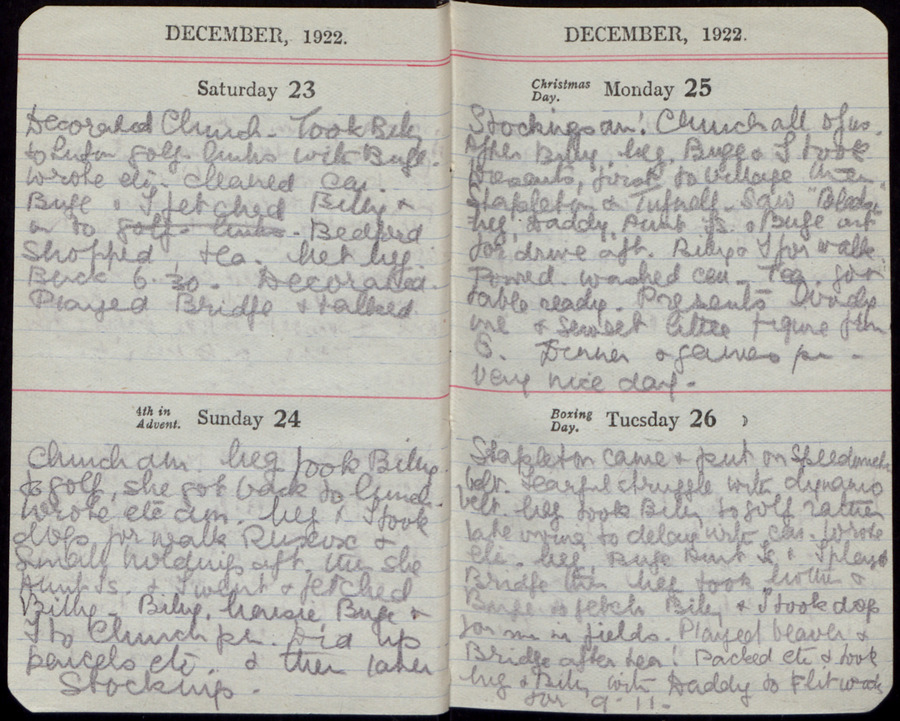 DECEMBER, 1922.
Saturday 23
Decorated Church. Took Billy
to Luton golf links with Buge.
wrote etc. cleaned car.
Buge & I fetched Billy &
on to golf links. Bedford
shopped tea. Met Meg
Back 6.30. Decorated.
Played Bridge & talked
4th in Advent. Sunday 24
Church am. Meg took Billy
to golf, she got back to lunch.
wrote etc am. Meg & I took
dogs for walk &
Small holdings aft. then she
Aunt Is. & I went & fetched
Billy. Billy, Buge &
I to Church pm. Did up
parcels etc. & then later
Stockings.
DECEMBER, 1922.
Christmas Day. Monday 25
Stockings am! Church all of us.
After Billy, Meg, Buge & I took
presents, first to village then
Stapleton & Tufnell. Saw
Meg, Daddy, Aunt Is. & Buge out
for drive aft. Billy & I for walk
round. washed car. Tea, got
table ready. Presents lovely
one & sweet little figure from
B. Dinner & games pm.
Very nice day.
Boxing Day. Tuesday 26
Stapleton came & put on Speedometer
belt. Fearful struggle with dynamo
belt. Meg took Billy to golf rather
late owing to delay with car. wrote
etc. Meg, Buge Aunt Is & I played
Bridge then Meg took &
Buge to fetch Billy & I took dogs
for run in fields. Played beaver &
Bridge after tea! Packed etc & took
Meg & Billy with Daddy to Flitwick
for 9.11.